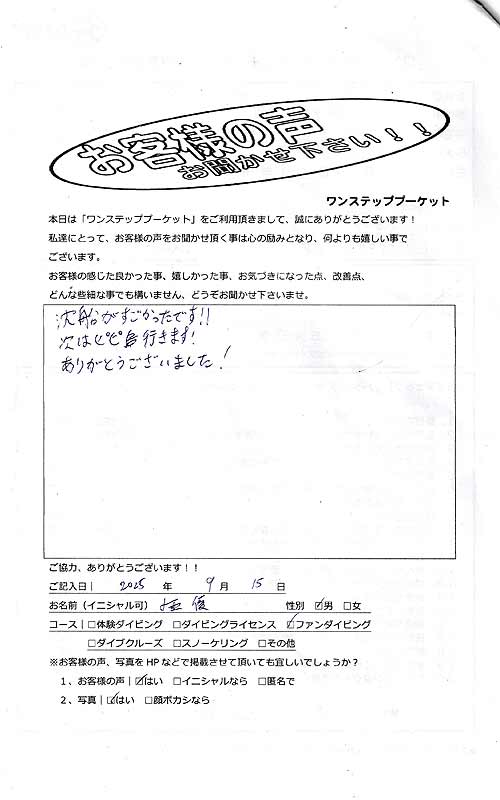 お客様の声
お聞かせ下さい！！
ワンステッププーケット
本日は「ワンステッププーケット」をご利用頂きまして、誠にありがとうございます！
私達にとって、お客様の声をお聞かせ頂く事は心の励みとなり、何よりも嬉しい事で
ございます。
お客様の感じた良かった事、嬉しかった事、お気づきになった点、改善点、
どんな些細な事でも構いません、どうぞお聞かせ下さいませ。
沈船がすごかったです!!
次はピピ島行きます!
ありがとうございました!
ご協力、ありがとうございます！！
ご記入日| 2025 年 9 月 15 日
お名前（イニシャル可） 優 性別 ☑男 □女
コース|□体験ダイビング □ダイビングライセンス ☑ファンダイビング
□ダイブクルーズ □スノーケリング □その他
※お客様の声、写真をHPなどで掲載させて頂いても宜しいでしょうか？
1、お客様の声|☑はい □イニシャルなら □匿名で
2、写真|☑はい □顔ボカシなら